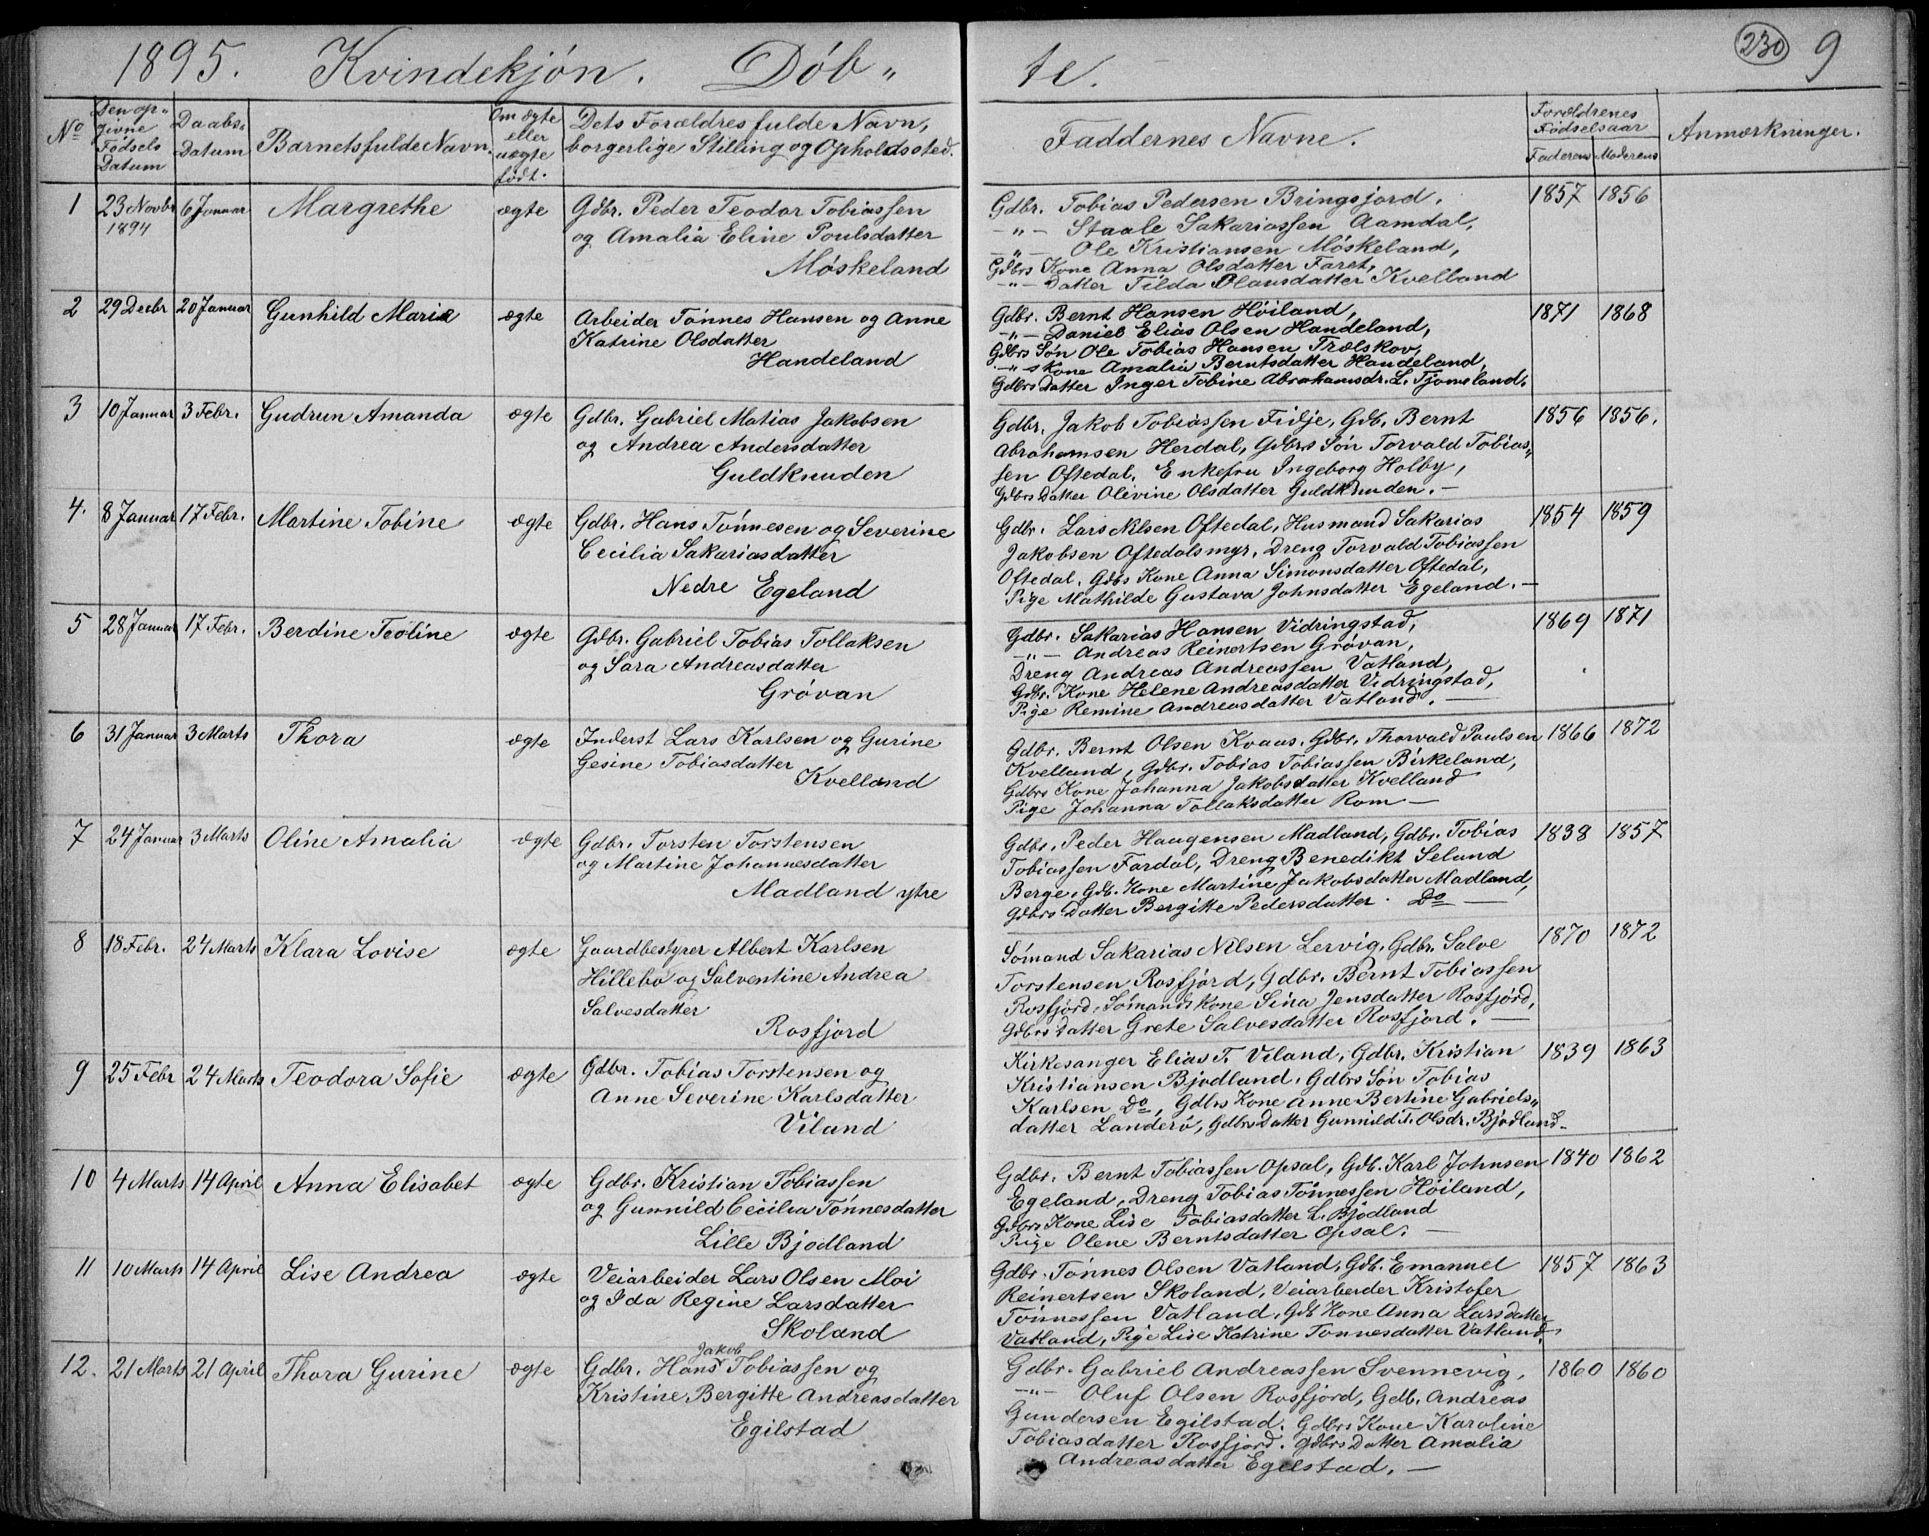 1895. Kvindekjøn. Døb„ te. 230 9
No
Den op„
givne
Fødsels
Datum
Daabs„
Datum
Barnets fulde Navn.
Om ægte
eller
uægte
født.
Dets Forældres fulde Navn,
borgerlige Stilling og Opholdssted.
Faddernes Navne.
Forældrenes
Fødselsaar
Faderens Moderens
Anmærkninger.
1 23 Novbr 6 Januar Margrethe ægte Gdbr. Peder Teodor Tobiassen
1894 og Amalia Eline Poulsdatter
Møskeland
Gdbr. Tobias Pedersen Bringsjord, 1857 1856
-„- Staale Sakariassen Aamdal,
-„- Ole Kristiansen Møskeland,
Gdbrs Kone Anna Olsdatter Faret,
-„- Datter Tilda Olausdatter Kvelland
2 29 Decbr 20 Januar Gunhild Marie ægte Arbeider Tønnes Hansen og Anne
Katrine Olsdatter
Handeland
Gdbr. Bernt Hansen Høiland, 1871 1868
-„- Daniel Elias Olsen Handeland,
Gdbrs Søn Ole Tobias Hansen Trælskov,
-„- Kone Amalia Berntsdatter Handeland,
Gdbrs Datter Inger Tobine Abrahamsdr. L. Tjomsland.
3 10 Januar 3 Febr. Gudrun Amanda ægte Gdbr. Gabriel Matias Jakobsen
og Andrea Andersdatter
Guldknuden
Gdbr. Jakob Tobiassen Fidje, Gdb. Bernt 1856 1856.
Abrahamsen Herdal, Gdbrs Søn Torvald Tobias„
sen Oftedal, Enkefru Ingeborg Holby,
Gdbrs Datter Olivine Olsdatter Guldknuden. —
4. 8 Januar 17 Febr. Martine Tobine ægte Gdbr. Hans Tønnesen og Severine
Cecilia Sakariasdatter
Nedre Egeland
Gdbr. Lars Nilsen Oftedal, Husmand Sakarias 1854 1859
Jakobsen Oftedalsmyr, Dreng Torvald Tobiassen
Oftedal, Gdbs Kone Anna Simonsdatter Oftedal,
Pige Mathilde Gustava Johnsdatter Egeland. —
5 28 Januar 17 Febr. Berdine Teoline ægte Gdbr. Gabriel Tobias Tollaksen
og Sara Andreasdatter
Grøvan
Gdbr. Sakarias Hansen Vidringstad, 1869 1871
-„- Andreas Reinertsen Grøvan,
Dreng Andreas Andreassen Vatland,
Gdbr. Kone Helene Andreasdatter Vidringstad,
Pige Remine Andreasdatter Vatland. —
6 31 Januar 3 Marts Thora ægte Inderst Lars Karlsen og Gurine
Gesine Tobiasdatter
Kvelland
Gdbr. Bernt Olsen Kvaas, Gdbr. Thorvald Paulsen 1866 1872
Kvelland, Gdbr. Tobias Tobiassen Birkeland,
Gdbrs Kone Johanna Jakobsdatter Kvelland
Pige Johanna Tollaksdatter Rom —
7 24 Januar 3 Marts Oline Amalia ægte Gdbr. Torsten Torstensen
og Martine Johannesdatter
Madland ytre
Gdbr. Peder Haagensen Madland, Gdbr. Tobias 1838 1857
Tobiassen Fardal, Dreng Benedikt Seland
Berge, Gdb. Kone Martine Jakobsdatter Madland,
Gdbrs Datter Bergitte Pedersdatter. Do —
8 18 Febr. 24 Marts Klara Lovise ægte Gaardbestyrer Albert Karlsen
Hillebø og Salventine Andrea
Salvesdatter
Rosfjord
Sømand Sakarias Nilsen Lervig, Gdbr. Salve 1870 1872
Torstensen Rosfjord, Gdbr. Bernt Tobiassen
Rosfjord, Sømands Kone Sina Jensdatter Rosfjord,
Gdbrs Datter Grete Salvesdatter Rosfjord. —
9 25 Febr 24 Marts Teodora Sofie ægte Gdbr. Tobias Torstensen og
Anne Severine Karlsdatter
Viland
Kirkesanger Elias T. Viland, Gdbr. Kristian 1839 1863
Kristiansen Bjodland, Gdbrs Søn Tobias
Karlsen Do, Gdbrs Kone Anne Bertine Gabriels„
datter Landerø, Gdbrs Datter Gunnild T. Olsdr. Bjodland.
10 4 Marts 14 April Anna Elisabet ægte Gdbr. Kristian Tobiassen
og Gunnild Cecilia Tønnesdatter
Lille Bjodland
Gdbr. Bernt Tobiassen Opsal, Gdb. Karl Johnsen 1840 1862
Egeland, Dreng Tobias Tønnessen Høiland,
Gdbrs Kone Lise Tobiasdatter L. Bjodland
Pige Olene Berntsdatter Opsal. —
11 10 Marts 14 April Lise Andrea ægte Veiarbeider Lars Olsen Moi
og Ida Regine Larsdatter
Skoland
Gdbr. Tønnes Olsen Vatland, Gdb. Emanuel 1857 1863
Reinertsen Skoland, Veiarbeider Kristofer
Tønnessen Vatland, Gdb Kone Anna Larsdatter
Vatland, Pige Lise Katrine Tonnesdatter Vatland.
12. 21 Marts 21 April Thora Gurine ægte Gdbr. Hans Jakob Tobiassen og
Kristine Bergitte Andreasdatter
Egilstad
Gdbr. Gabriel Andreassen Svennevig, 1860 1860
-„- Oluf Olsen Rosfjord, Gdb. Andreas
Gundersen Egilstad. Gdbrs Kone Karoline
Tobiasdatter Rosfjord. Gdbrs Datter Amalia
Andreasdatter Egilstad. —